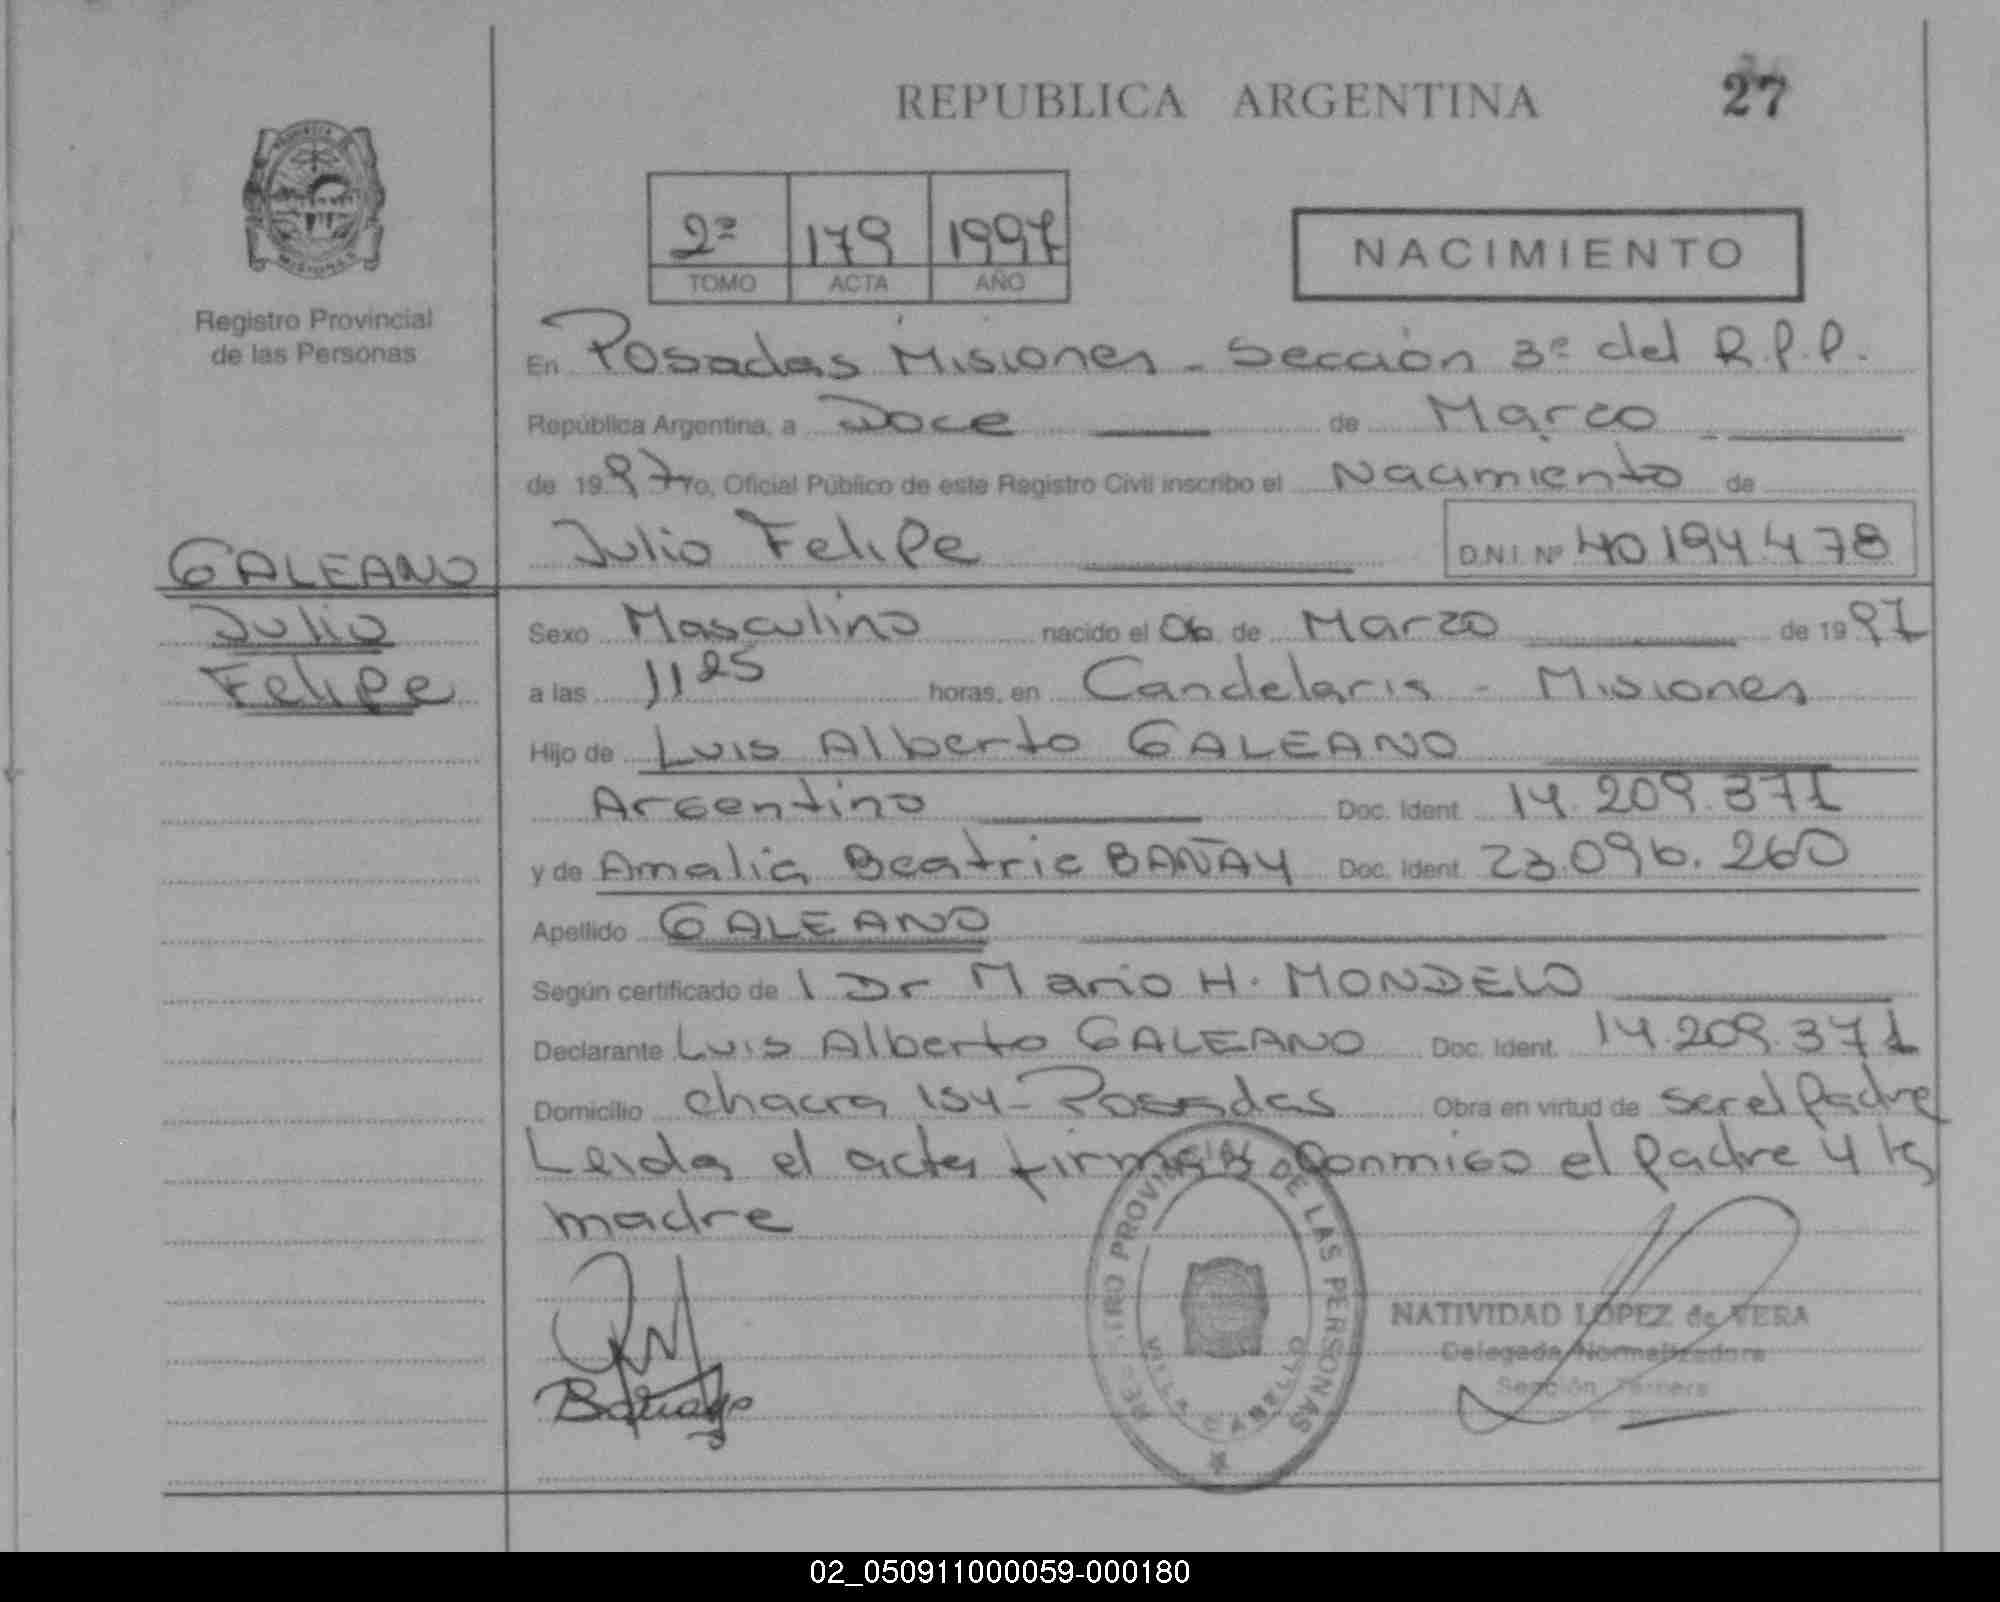 REPUBLICA ARGENTINA
27
PROVINCIA
MISIONES
Registro Provincial
de las Personas
2ª 179 1997
TOMO ACTA AÑO
NACIMIENTO
En Posadas Misiones - Sección 3ª del R.P.P.
República Argentina, a Doce de Marzo
de 1997 yo, Oficial Público de este Registro Civil inscribo el Nacimiento de
Julio Felipe D.N.I. Nº 40194478
GALEANO
Julio
Felipe
Sexo Masculino nacido el 06 de Marzo de 1997
a las 11 25 horas, en Candelaria - Misiones
Hijo de Luis Alberto GALEANO
Argentino Doc. Ident. 14.209.371
y de Amalia Beatriz BAÑAY Doc. Ident. 23.096.260
Apellido GALEANO
Según certificado de l Dr Mario H. MONDELO
Declarante Luis Alberto GALEANO Doc. Ident. 14.209.371
Domicilio chacra 154 - Posadas Obra en virtud de ser el Padre
Leida el acta firman conmigo el padre y la
madre
REGISTRO PROVINCIAL DE LAS PERSONAS
VILLA CABELLO
NATIVIDAD LOPEZ de VERA
Delegada Normalizadora
Sección Tercera
02_050911000059-000180